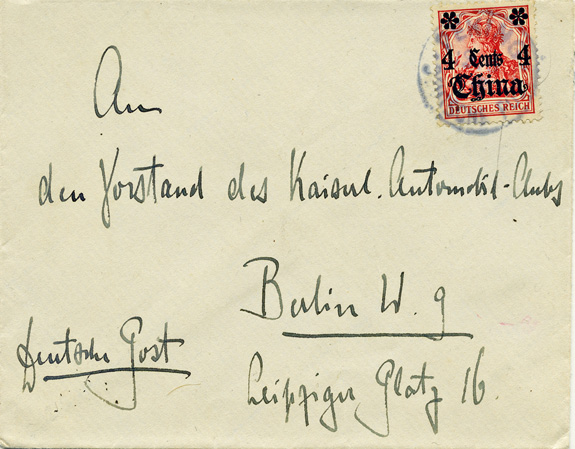 4 Cents 4
China
DEUTSCHES REICH
An
den Vorstand des Kaiserl. Automobil-Clubs
Berlin W. 9
Deutsche Post
Leipziger Platz 16.